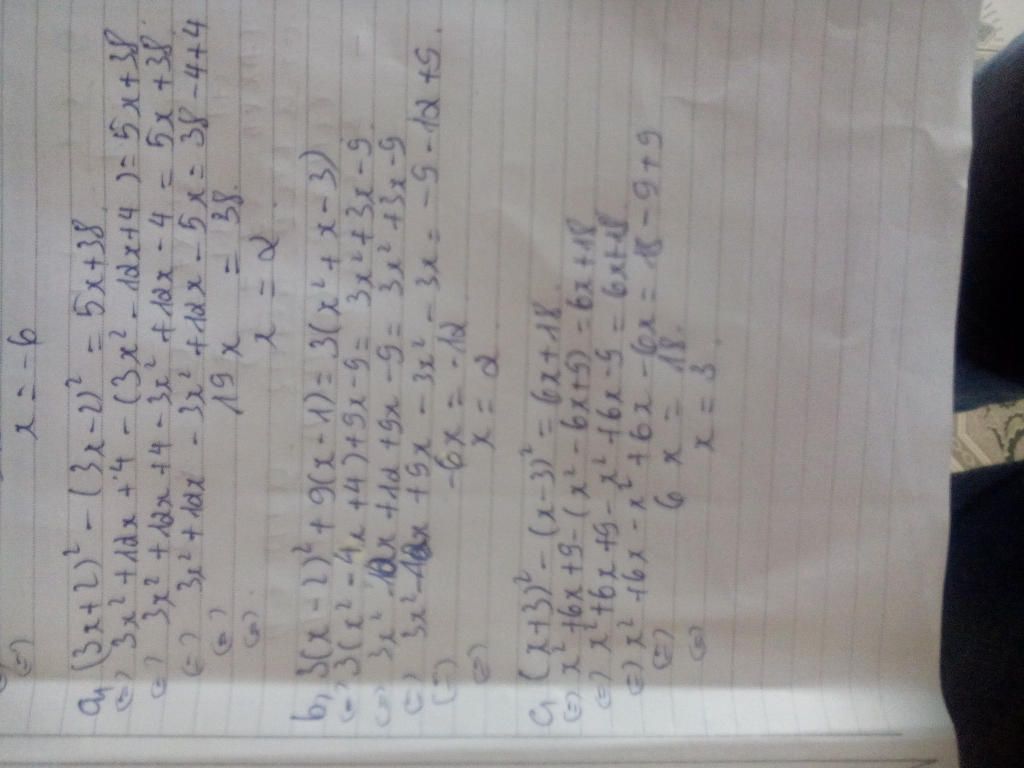 (=) x = -6
a, (3x+2)² - (3x-2)² = 5x+38
(=) 3x² + 12x + 4 - (3x² - 12x+4) = 5x+38
(=) 3x² + 12x + 4 - 3x² + 12x - 4 = 5x + 38
(=) 3x² + 12x - 3x² + 12x - 5x = 38 - 4 + 4
(=) 19x = 38
(=) x = 2
b, 3(x-2)² + 9(x-1) = 3(x² + x - 3)
(=) 3(x² - 4x + 4) + 9x - 9 = 3x² + 3x - 9
(=) 3x² - 12x + 12 + 9x - 9 = 3x² + 3x - 9
(=) 3x² - 12x + 9x - 3x² - 3x = -9 - 12 + 9
(=) -6x = -12
(=) x = 2
c, (x+3)² - (x-3)² = 6x+18
(=) x² + 6x + 9 - (x² - 6x + 9) = 6x + 18
(=) x² + 6x + 9 - x² + 6x - 9 = 6x + 18
(=) x² + 6x - x² + 6x - 6x = 18 - 9 + 9
(=) 6x = 18
(=) x = 3